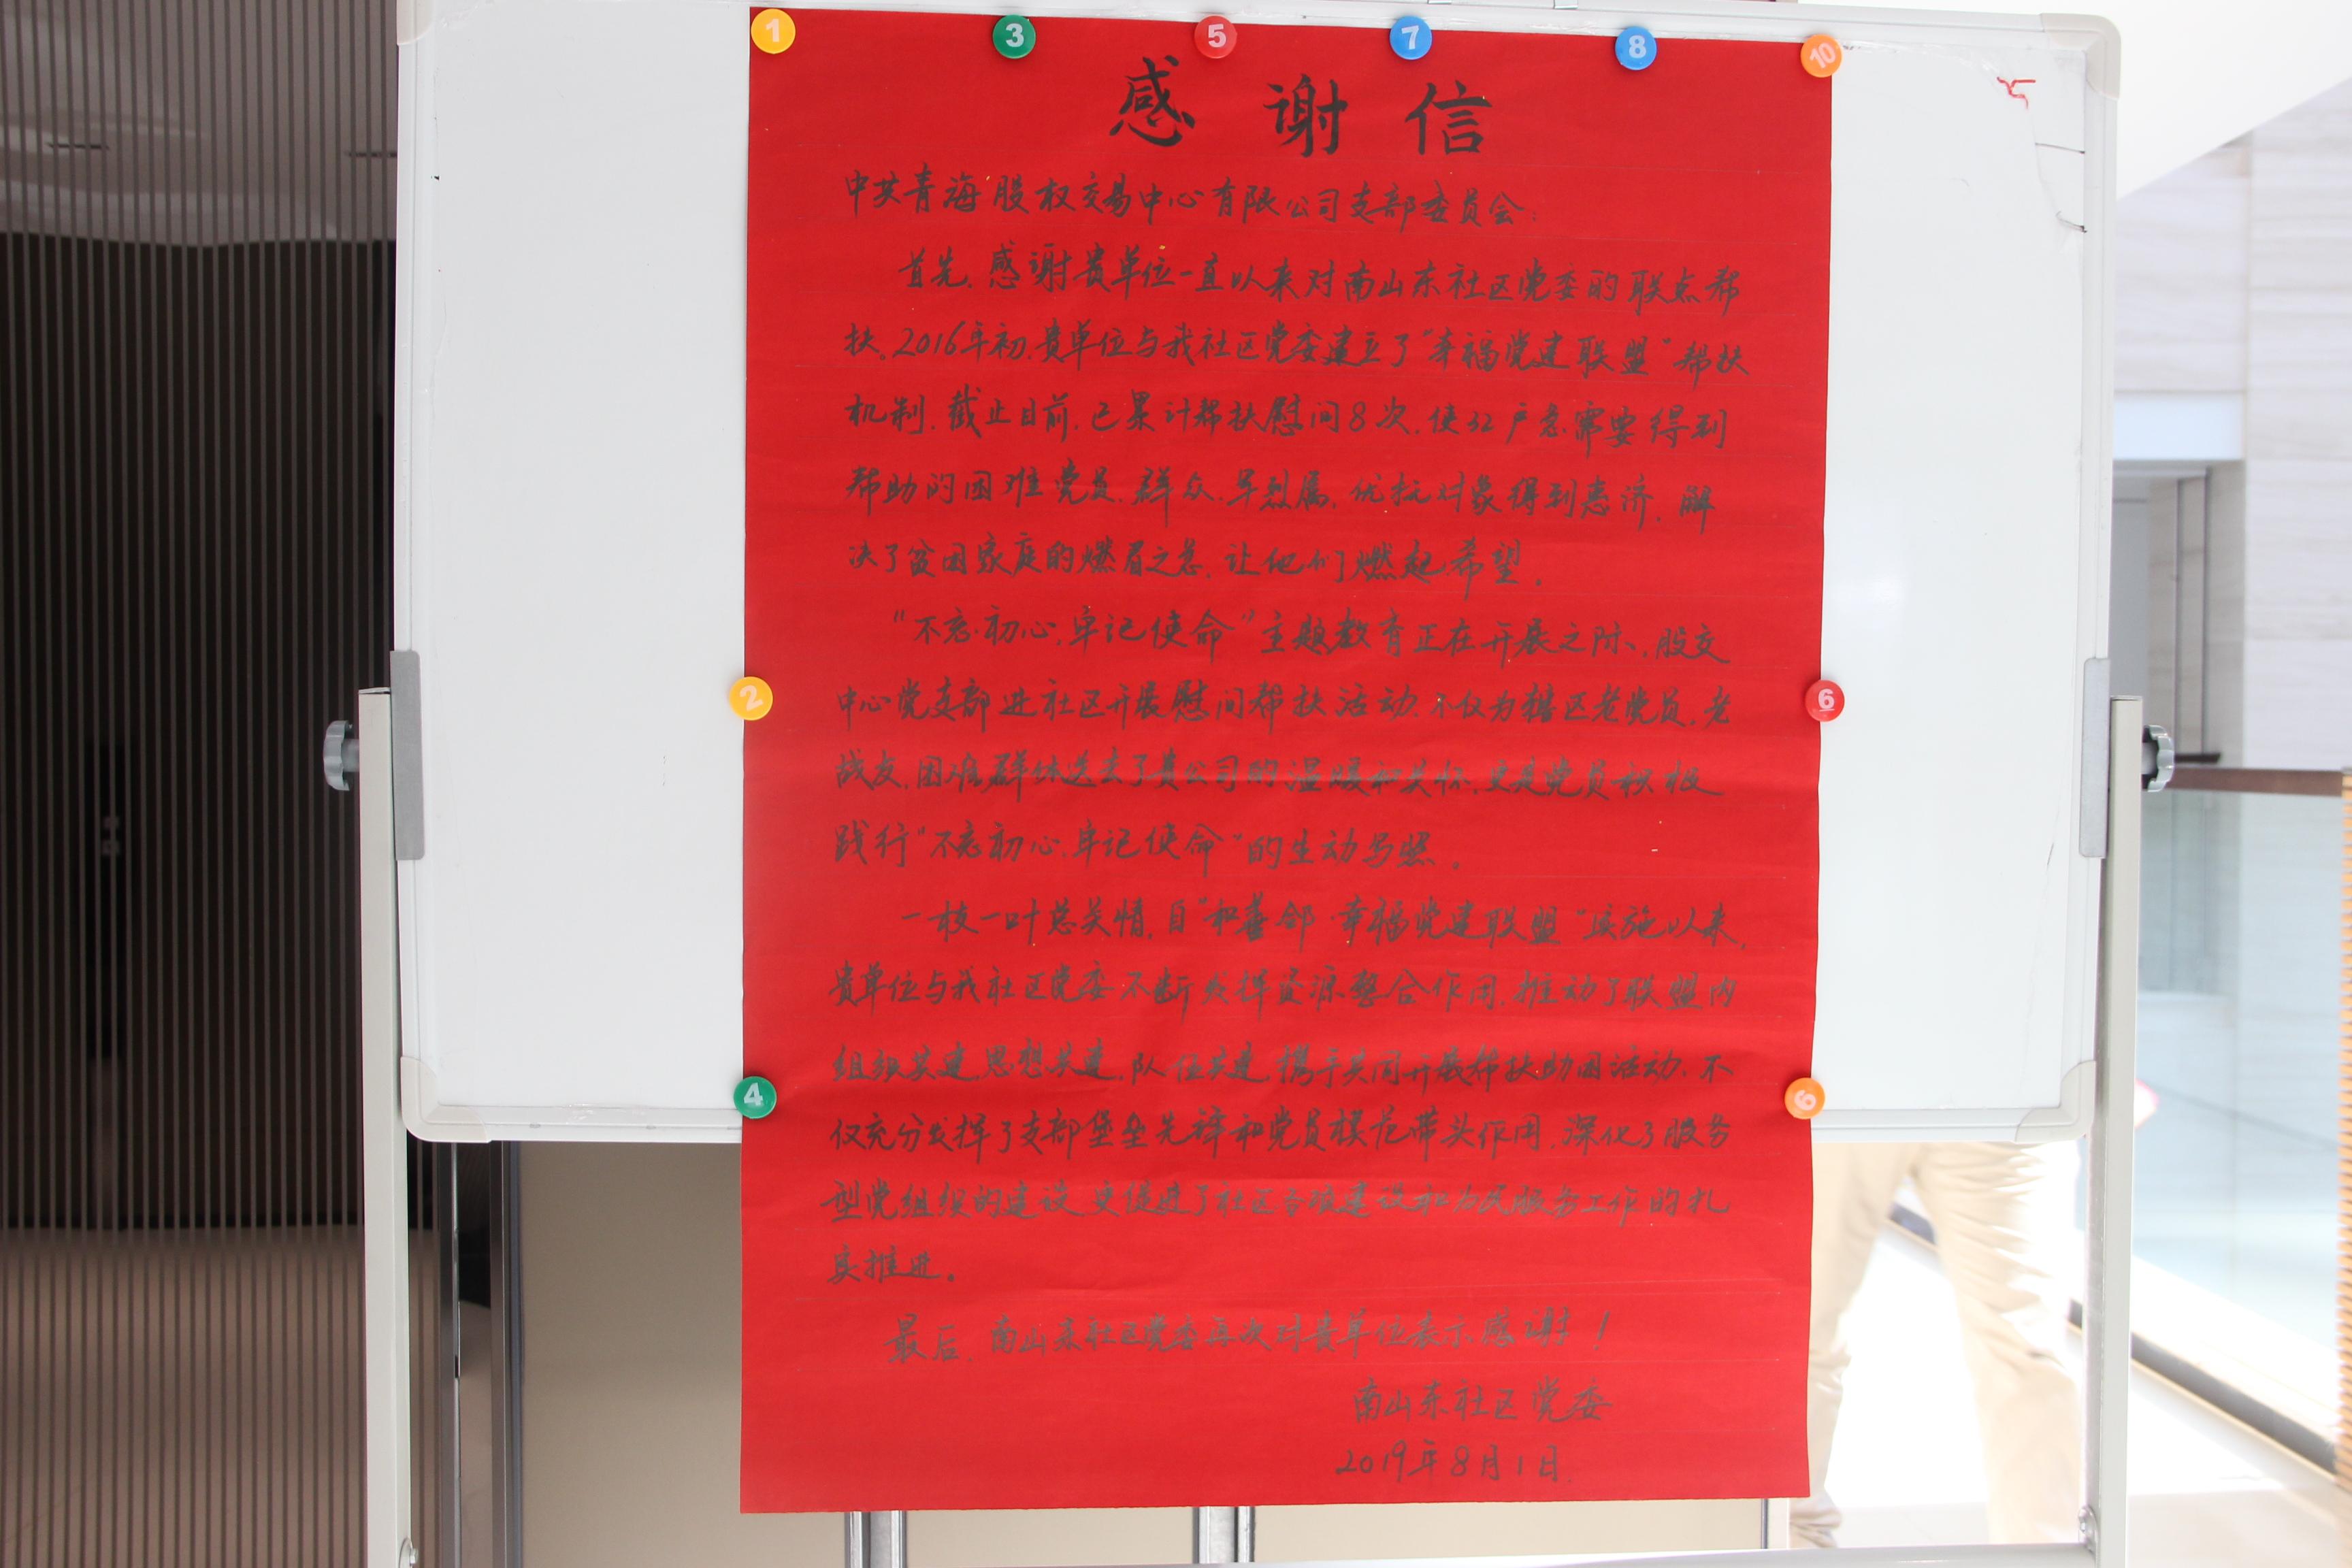 1 3 5 7 8 10
感谢信
中共青海股权交易中心有限公司支部委员会:
首先,感谢贵单位一直以来对南山东社区党委的联点帮
扶。2016年初,贵单位与我社区党委建立了"幸福党建联盟"帮扶
机制,截止目前,已累计帮扶慰问8次,使32户急需要得到
帮助的困难党员、群众、军烈属、优抚对象得到惠济,解
决了贫困家庭的燃眉之急,让他们燃起希望。
"不忘初心,牢记使命"主题教育正在开展之际,股交
2
中心党支部进社区开展慰问帮扶活动,不仅为辖区老党员、老
6
战友、困难群体送去了贵公司的温暖和关怀,更是党员积极
践行"不忘初心,牢记使命"的生动写照。
一枝一叶总关情,自"和善邻·幸福党建联盟"实施以来,
贵单位与我社区党委不断发挥资源整合作用,推动了联盟内
组织共建,思想共建,队伍共建,携手共同开展帮扶助困活动,不
4
6
仅充分发挥了支部堡垒先锋和党员模范带头作用,深化了服务
型党组织的建设,更促进了社区各项建设和为民服务工作的扎
实推进。
最后,南山东社区党委再次对贵单位表示感谢!
南山东社区党委
2019年8月1日